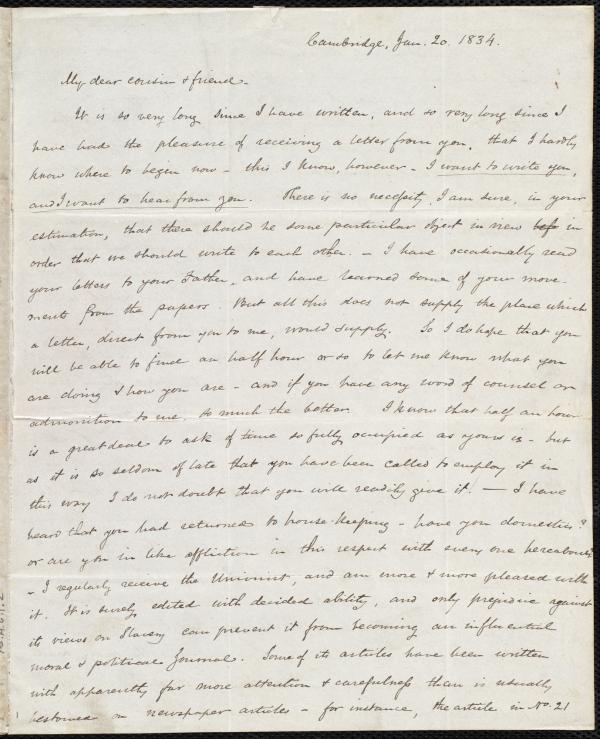 Cambridge, Jan. 20. 1834.
My dear cousin & friend -
It is so very long since I have written, and so very long since I
have had the pleasure of receiving a letter from you, that I hardly
know where to begin now - this I know, however - I want to write you,
and I want to hear from you. There is no necessity, I am sure, in your
estimation, that there should be some particular object in view in
order that we should write to each other. - I have occasionally read
your letters to your Father, and have learned some of your move-
ments from the papers. But all this does not supply the place which
a letter, direct from you to me, would supply. So I do hope that you
will be able to find an half hour or so to let me know what you
are doing & how you are - and if you have any word of counsel or
admonition to me, so much the better. I know that half an hour
is a great deal to ask of time so fully occupied as yours is - but
as it is so seldom of late that you have been called to employ it in
this way I do not doubt that you will readily give it. - I have
heard that you had returned to house-keeping - have you domestics?
or are you in like affliction in this respect with every one hereabouts?
- I regularly receive the Unionist, and am more & more pleased with
it. It is surely edited with decided ability, and only prejudice against
its views on Slavery can prevent it from becoming an influential
moral & political Journal. Some of its articles have been written
with apparently far more attention & carefulness than is usually
bestowed on newspaper articles - for instance, the article in No. 21